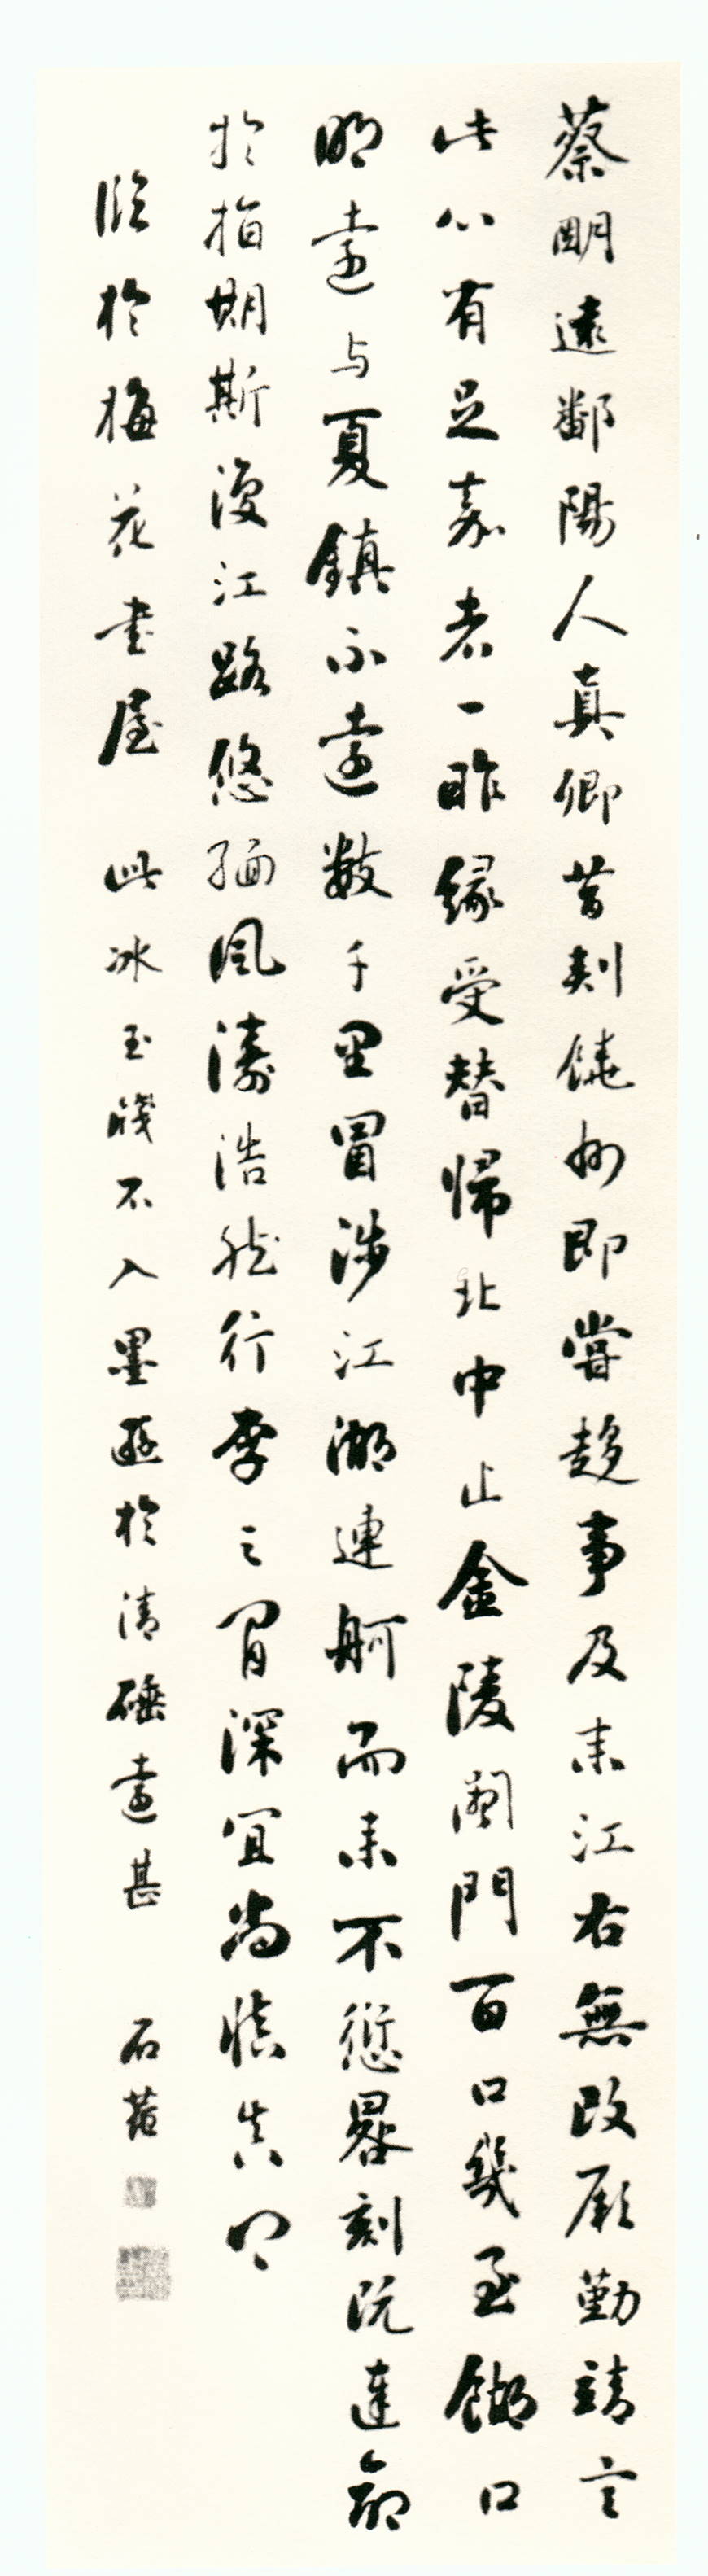 蔡明遠鄱陽人真卿昔刺饒州即嘗趍事及来江右無改厥勤靖言
此心有足嘉者一昨緣受替歸北中止金陵闔門百口幾至餬口
明遠与夏鎮不遠數千里冒涉江湖連舸而来不愆晷刻既達命
於指期斯復江路悠緬風濤浩然行李之間深宜尚慎真卿
臨於梅花書屋 此冰玉牋不入墨遜於清硾遠甚 石菴